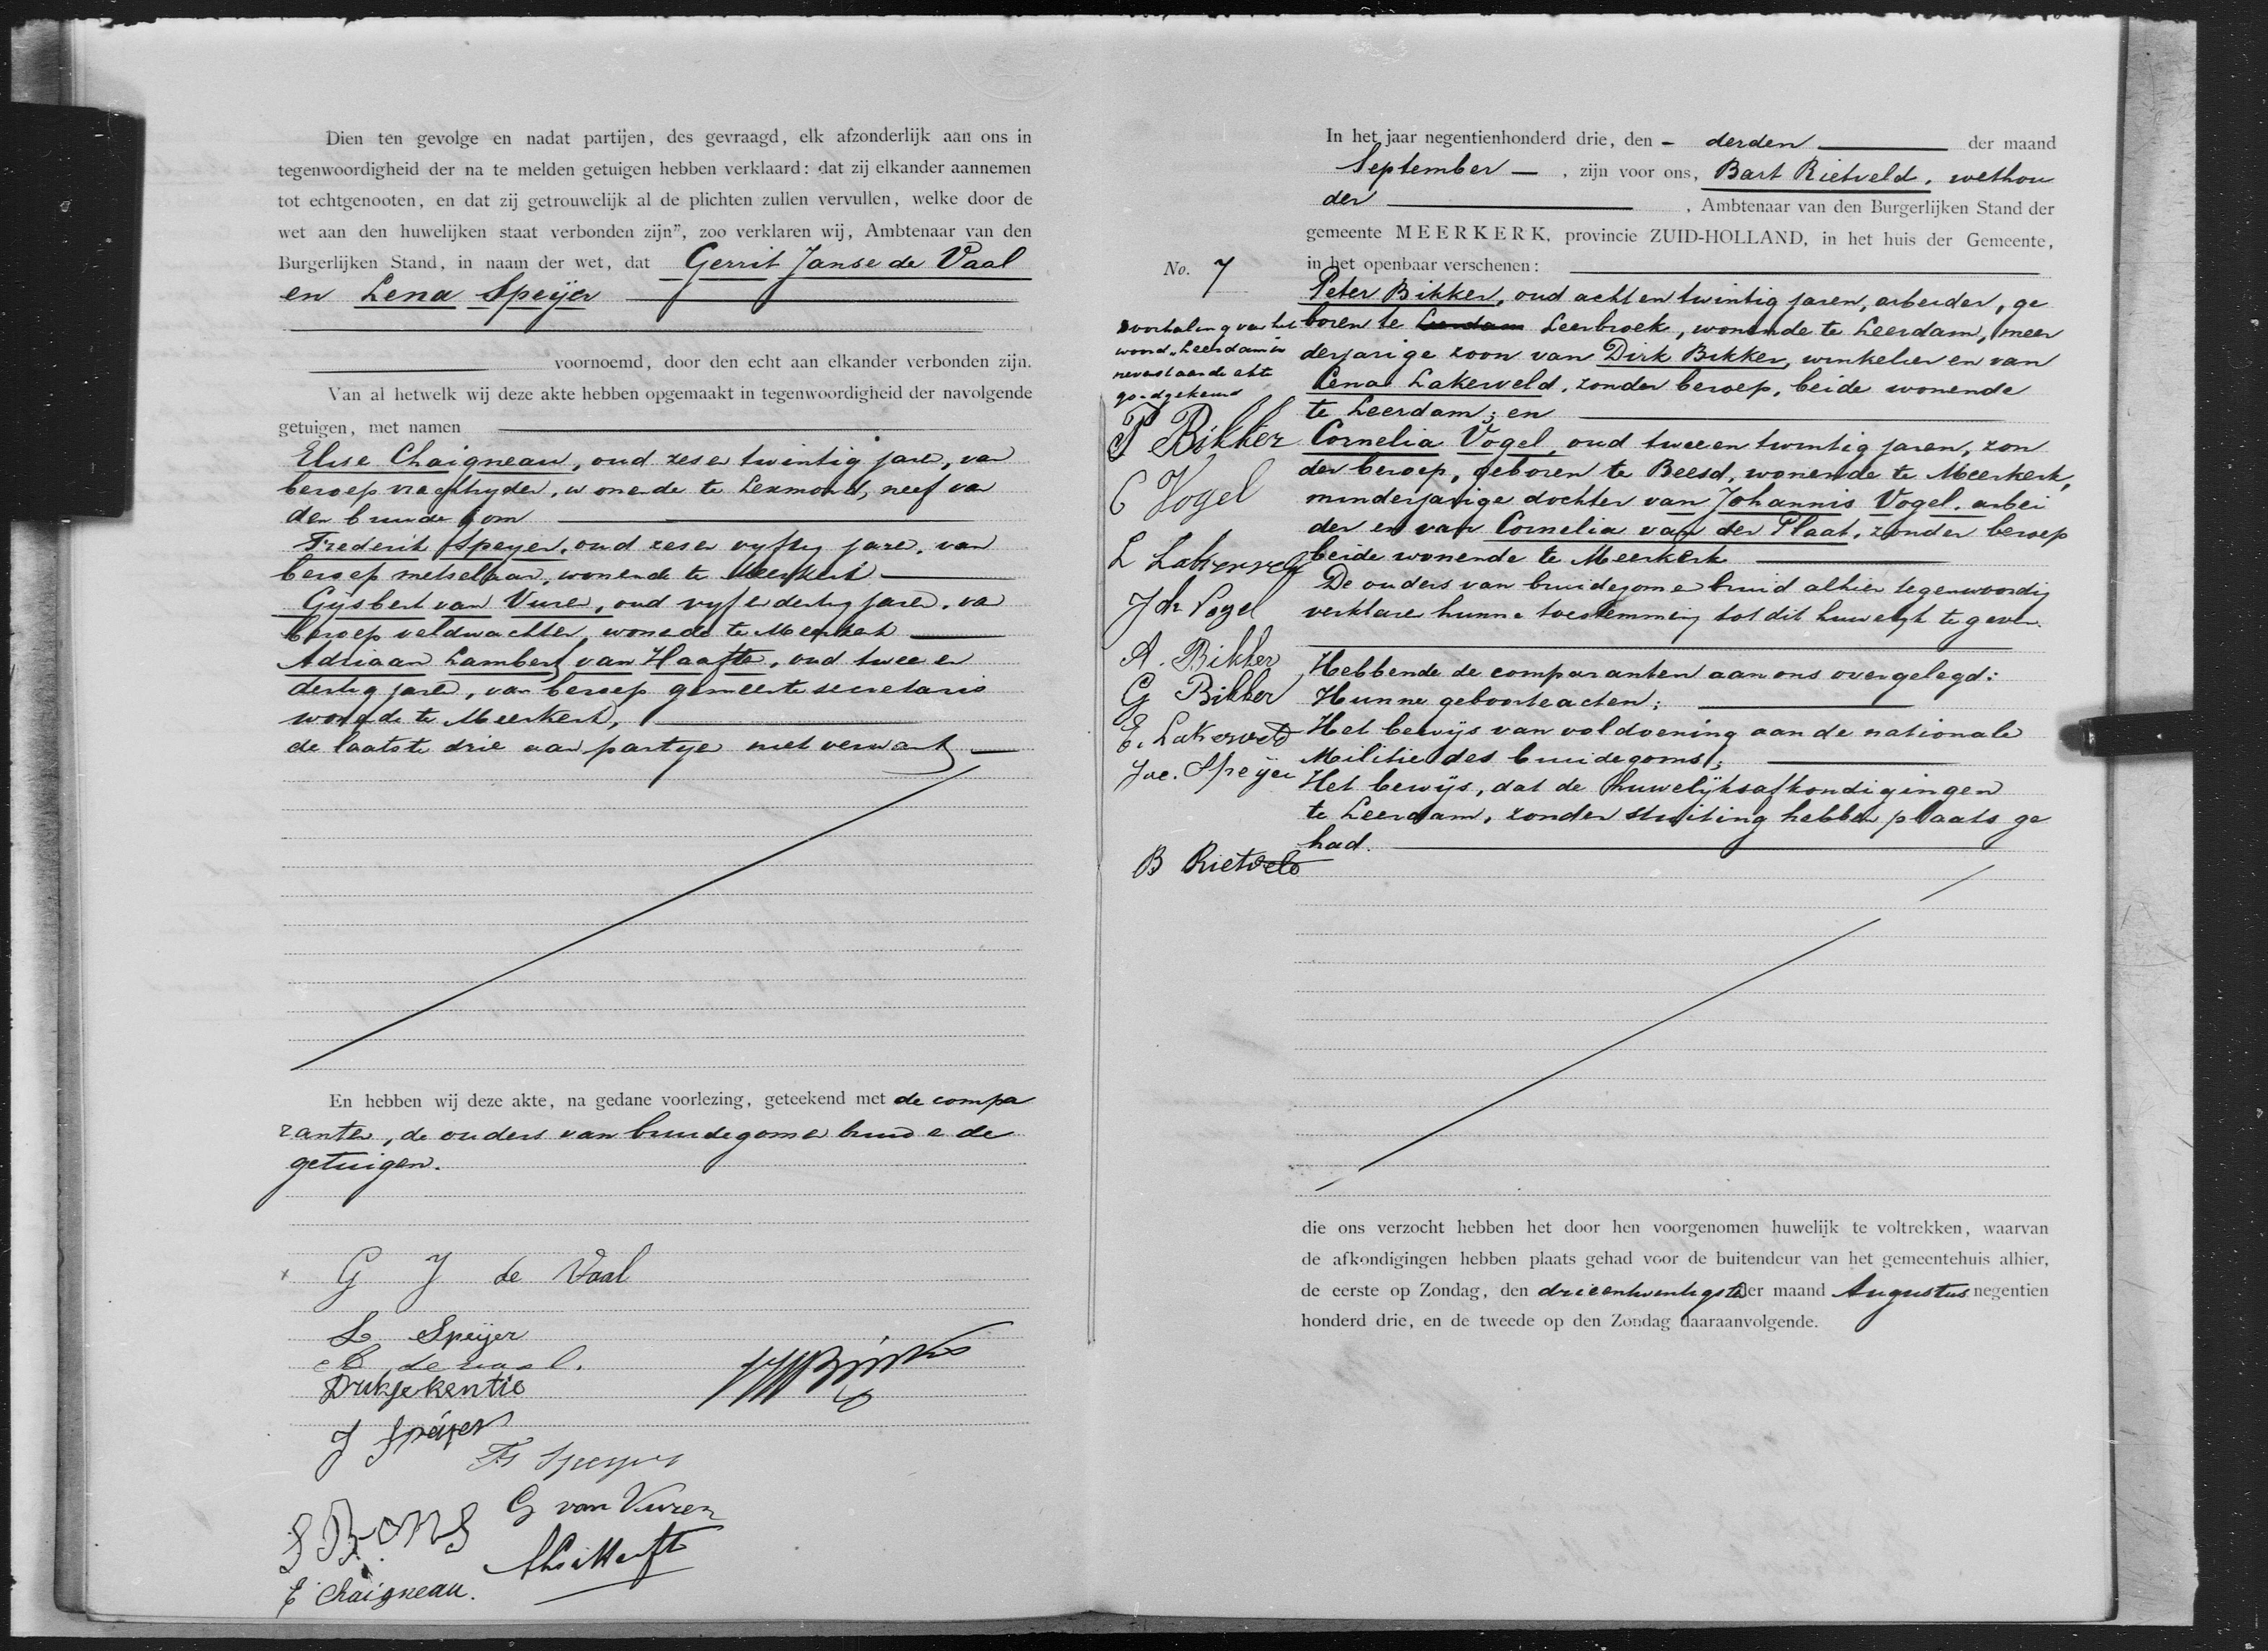 Dien ten gevolge en nadat partijen, des gevraagd, elk afzonderlijk aan ons in
tegenwoordigheid der na te melden getuigen hebben verklaard: dat zij elkander aannemen
tot echtgenooten, en dat zij getrouwelijk al de plichten zullen vervullen, welke door de
wet aan den huwelijken staat verbonden zijn", zoo verklaren wij, Ambtenaar van den
Burgerlijken Stand, in naam der wet, dat Gerrit Janse de Vaal
en Lena Speijer
voornoemd, door den echt aan elkander verbonden zijn.
Van al hetwelk wij deze akte hebben opgemaakt in tegenwoordigheid der navolgende
getuigen, met namen
Elise Chaigneau, oud zesen twintig jaren, van
beroep vrachtryder, wonende te Lexmond, neef van
den bruidegom
Frederik Speyer, oud zesen vyftig jaren, van
beroep metselaar, wonende te Meerkerk
Gijsbert van Vuren, oud vyfendertig jaren, van
beroep veldwachter, wonende te Meerkerk
Adriaan Lambert van Haaften, oud twee en
dertig jaren, van beroep gemeente secretaris
wonende te Meerkerk,
de laatste drie aan partyen niet verwant
En hebben wij deze akte, na gedane voorlezing, geteekend met de compa
ranten, de ouders van bruidegom en bruid en de
getuigen.
G J de Vaal
L Speijer
de vaal.
Dirkje kentie
J Speijer
Fs Speyer
G van Vuren
S Bons
E Chaigneau.
In het jaar negentienhonderd drie, den - derden der maand
September, zijn voor ons, Bart Rietveld, wethou
der, Ambtenaar van den Burgerlijken Stand der
gemeente MEERKERK, provincie ZUID-HOLLAND, in het huis der Gemeente,
No. 7 in het openbaar verschenen:
Peter Bikker, oud acht en twintig jaren, arbeider, ge
boren te Leerdam Leerbroek, wonende te Leerdam, meer
derjarige zoon van Dirk Bikker, winkelier en van
Lena Lakerveld, zonder beroep, beide wonende
te Leerdam; en
Cornelia Vogel, oud twee en twintig jaren, zon
der beroep, geboren te Beesd, wonende te Meerkerk,
minderjarige dochter van Johannis Vogel, arbei
der en van Cornelia van der Plaat, zonder beroep
beide wonende te Meerkerk
De ouders van bruidegom en bruid alhier tegenwoordig
verklaren hunne toestemming tot dit huwelyk te geven.
Hebbende de comparanten aan ons overgelegd:
Hunne geboorteacten;
Het bewijs van voldoening aan de nationale
Militie des bruidegoms;
Het bewijs, dat de huwelijksafkondigingen
te Leerdam, zonder stuiting hebben plaats ge
had.
doorhaling van het
woord "Leerdam" in
nevenstaande akte
goedgekeurd
P Bikker
C Vogel
L Lakerveld
Joh Vogel
A. Bikker
G Bikker
E. Lakerveld
Jac. Speijer
B Rietveld
die ons verzocht hebben het door hen voorgenomen huwelijk te voltrekken, waarvan
de afkondigingen hebben plaats gehad voor de buitendeur van het gemeentehuis alhier,
de eerste op Zondag, den drieentwintigste der maand Augustus negentien
honderd drie, en de tweede op den Zondag daaraanvolgende.